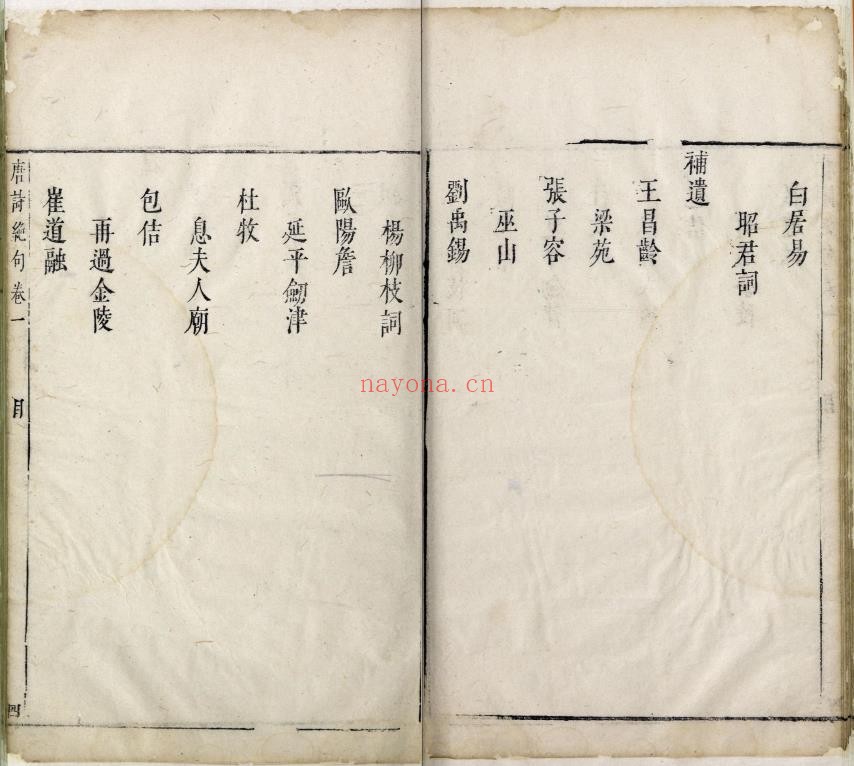 白居易
昭君詞
補遺
王昌齡
梁苑
張子容
巫山
劉禹錫
楊柳枝詞
歐陽詹
延平劒津
杜牧
息夫人廟
包佶
再過金陵
崔道融
唐詩絶句卷一 目 四
nayona.cn